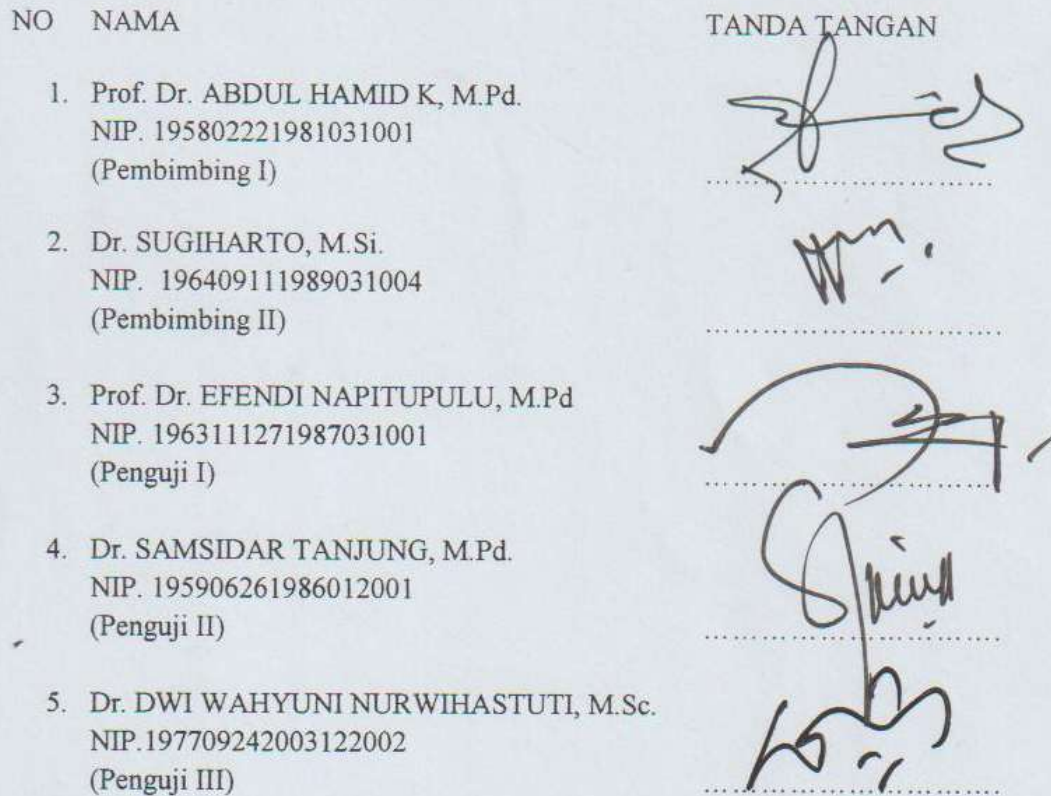 NO NAMA TANDA TANGAN
1. Prof. Dr. ABDUL HAMID K, M.Pd.
NIP. 195802221981031001
(Pembimbing I)
2. Dr. SUGIHARTO, M.Si.
NIP. 196409111989031004
(Pembimbing II)
3. Prof. Dr. EFENDI NAPITUPULU, M.Pd
NIP. 1963111271987031001
(Penguji I)
4. Dr. SAMSIDAR TANJUNG, M.Pd.
NIP. 195906261986012001
(Penguji II)
5. Dr. DWI WAHYUNI NURWIHASTUTI, M.Sc.
NIP.197709242003122002
(Penguji III)